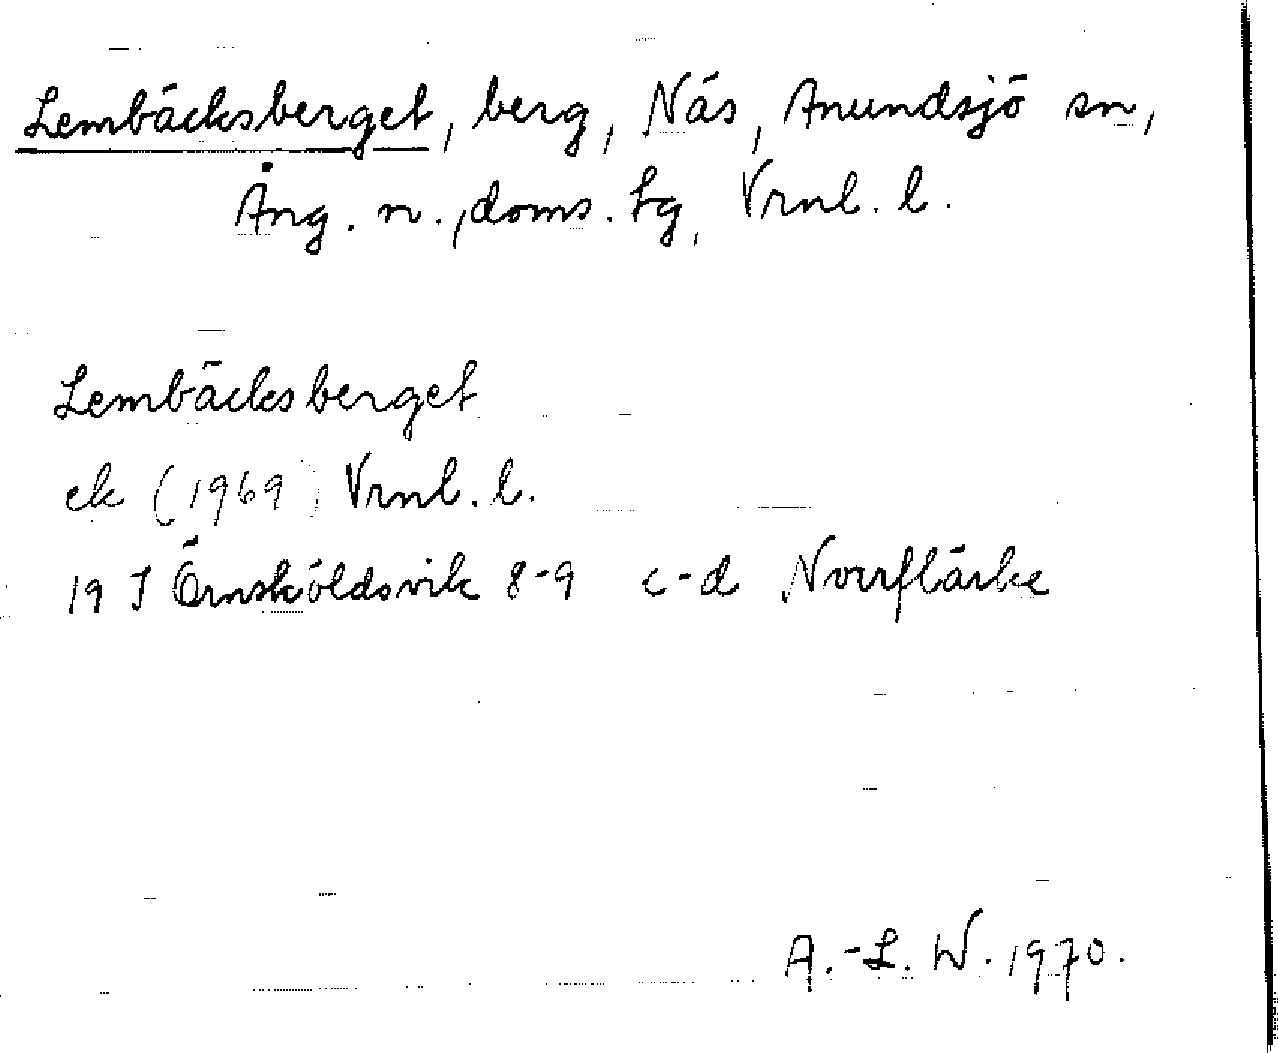 Lembäcksberget, berg, Näs, Anundsjö sn,
Ång. n., doms. tg, Vrnl. l.
Lembäcksberget
ek (1969) Vrnl. l.
19 J Örnsköldsvik 8-9 c-d Norrflärke
A.-L. W. 1970.